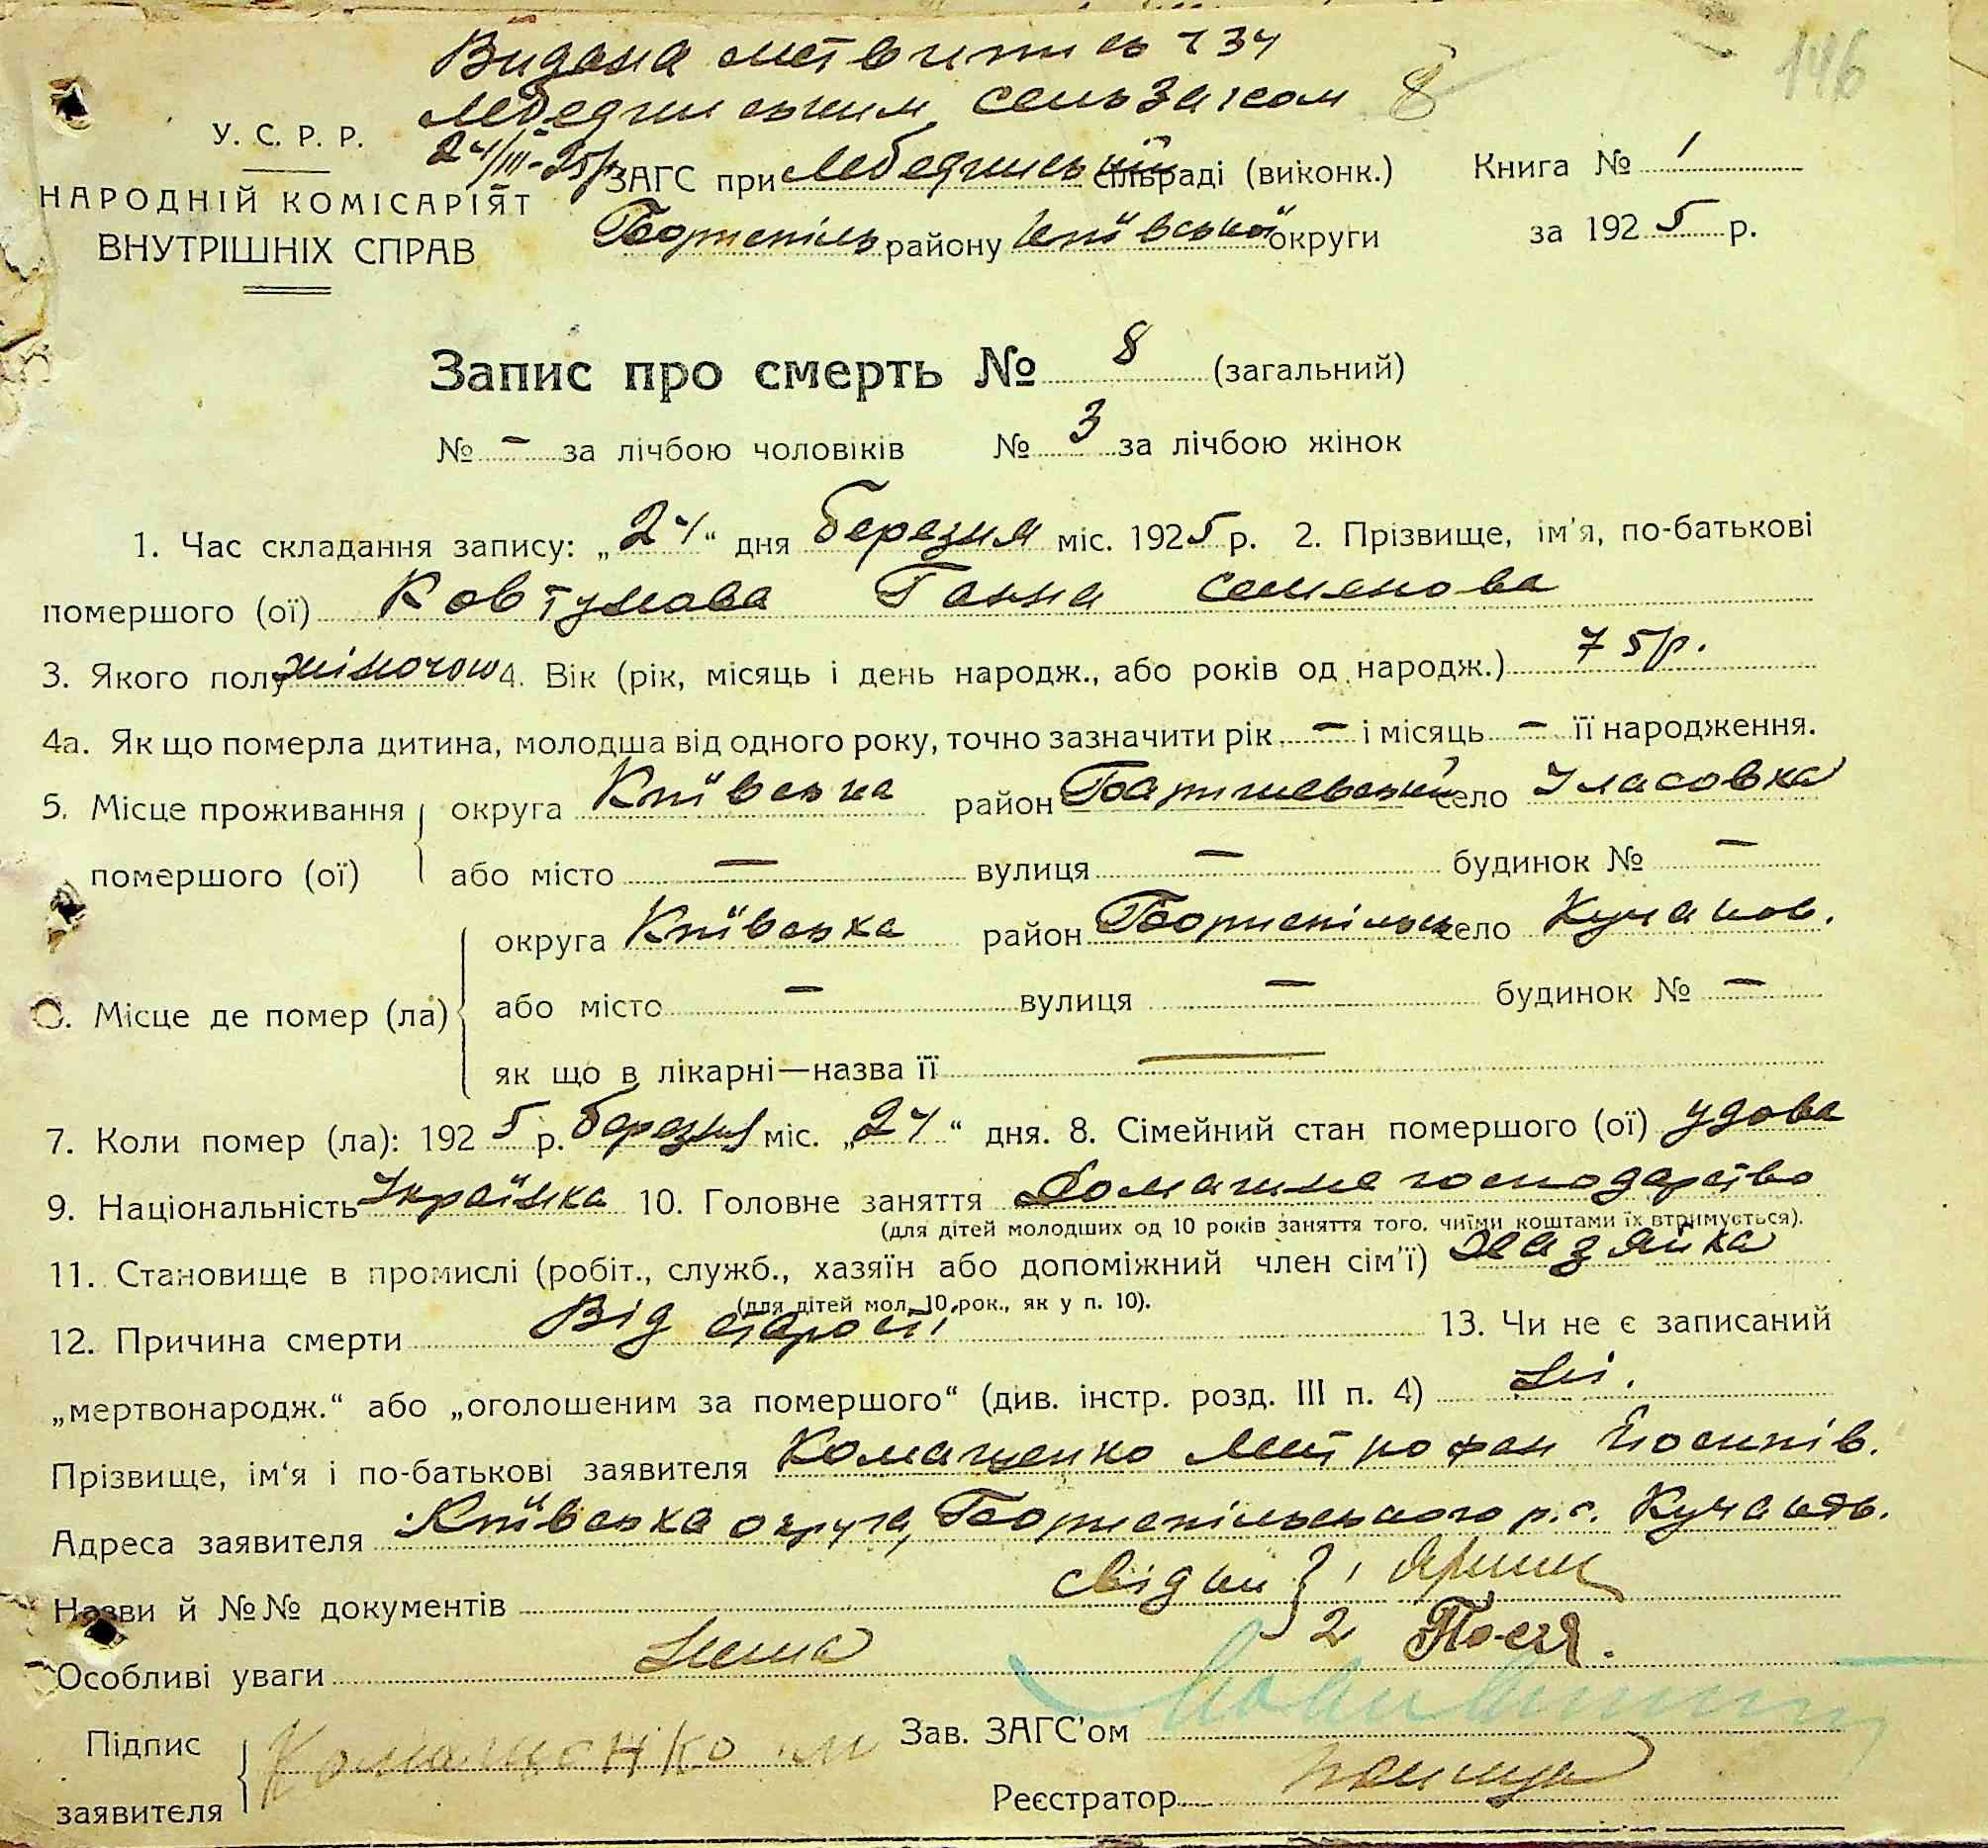 146
Видана
Лебединським сельзагсом 8
24/III-25р.
У. С. Р. Р.
НАРОДНІЙ КОМІСАРІЯТ
ВНУТРІШНІХ СПРАВ
ЗАГС при Лебединській сільраді (виконк.) Книга № 1
Бориспіль району Київської округи за 1925 р.
Запис про смерть № 8 (загальний)
№ — за лічбою чоловіків № 3 за лічбою жінок
1. Час складання запису: „24“ дня березня міс. 1925 р. 2. Прізвище, ім'я, по-батькові
помершого (ої) Ковтунова Ганна Семенова
3. Якого полу жіночого 4. Вік (рік, місяць і день народж., або років од народж.) 75р.
4а. Як що померла дитина, молодша від одного року, точно зазначити рік — і місяць — її народження.
5. Місце проживання округа Київська район Баришевський село Власовка
помершого (ої) або місто — вулиця — будинок № —
округа Київська район Бориспільськ село Кучаков.
6. Місце де помер (ла) або місто — вулиця — будинок № —
як що в лікарні—назва її —
7. Коли помер (ла): 1925 р. березня міс. „24“ дня. 8. Сімейний стан помершого (ої) удова
9. Національність Українка 10. Головне заняття Домашнє господарство
(для дітей молодших од 10 років заняття того, чиїми коштами їх втримується).
11. Становище в промислі (робіт., служб., хазяїн або допоміжний член сім'ї) хазяйка
(для дітей мол. 10 рок., як у п. 10).
12. Причина смерти Від старості 13. Чи не є записаний
„мертвонародж.“ або „оголошеним за помершого“ (див. інстр. розд. III п. 4) Ні.
Прізвище, ім'я і по-батькові заявителя Комащенко Митрофан Йосипів.
Адреса заявителя Київська округа, Бориспільського р. с. Кучаків.
Назви й №№ документів свідки 1
2
Особливі уваги Нема
Підпис
заявителя Комащенко м
Зав. ЗАГС'ом
Реєстратор